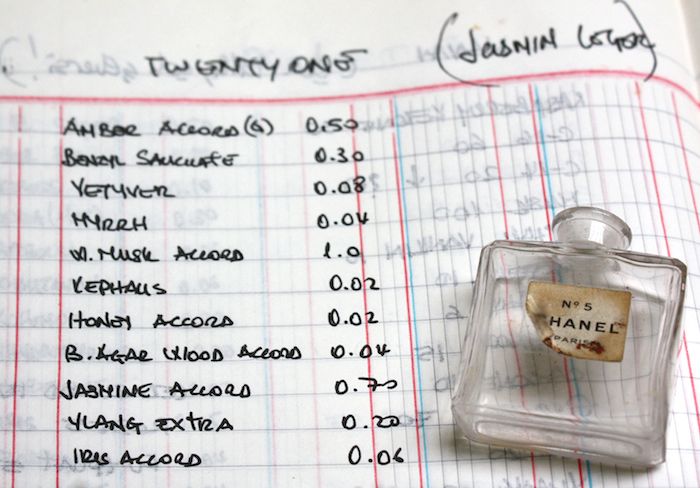 TWENTY ONE (JASMIN LEGER)
AMBER ACCORD(S) 0.50
BENZYL SALICILATE 0.30
VETYVER 0.08
MYRRH 0.04
W. MUSK ACCORD 1.0
KEPHALIS 0.02
HONEY ACCORD 0.02
B. AGAR WOOD ACCORD 0.04
JASMINE ACCORD 0.70
YLANG EXTRA 0.20
IRIS ACCORD 0.06
Nº 5
HANEL
PARIS